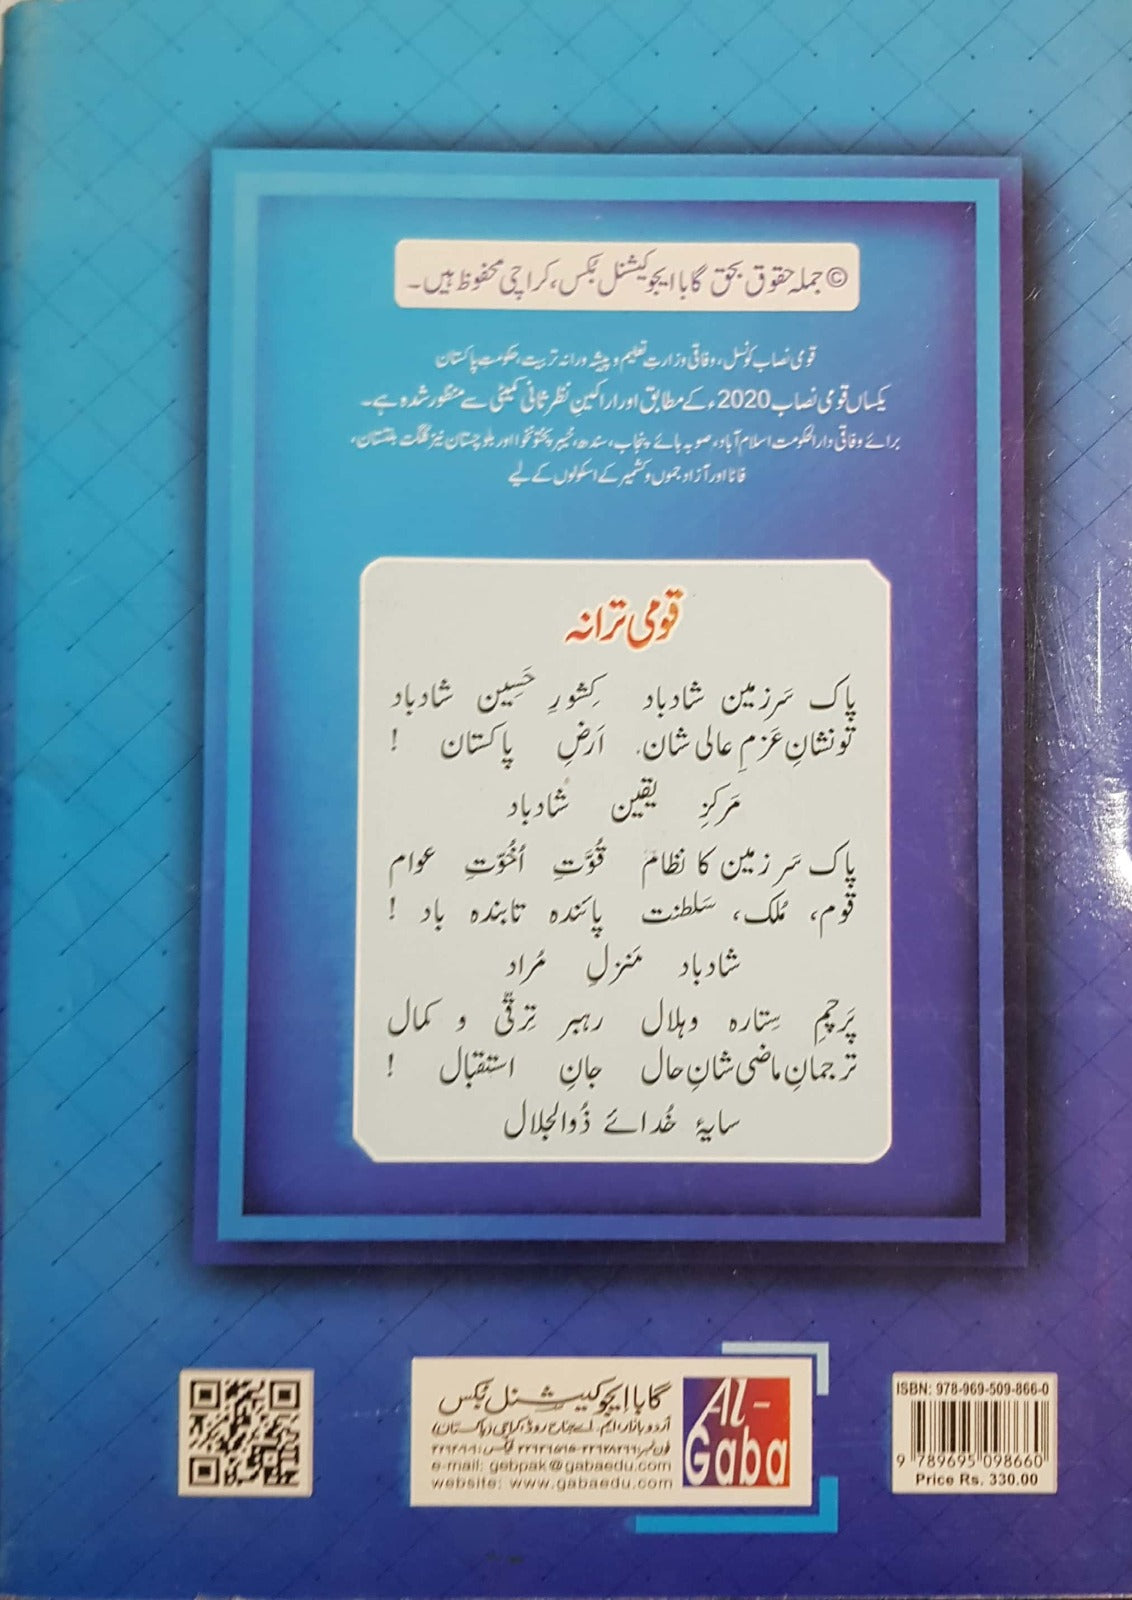 © جملہ حقوق بحق گابا ایجوکیشنل بکس، کراچی محفوظ ہیں۔
قومی نصاب کونسل، وفاقی وزارتِ تعلیم و پیشہ ورانہ تربیت، حکومتِ پاکستان
یکساں قومی نصاب 2020ء کے مطابق اور اراکین نظرثانی کمیٹی سے منظور شدہ ہے۔
برائے وفاقی دارالحکومت اسلام آباد، صوبہ ہائے پنجاب، سندھ، خیبر پختونخوا اور بلوچستان نیز گلگت بلتستان،
فاٹا اور آزاد جموں و کشمیر کے اسکولوں کے لیے
قومی ترانہ
پاک سَرزمین شادباد کِشورِ حَسِین شادباد
تونشانِ عَزمِ عالی شان۔ اَرضِ پاکستان !
مَرکزِ یقین شادباد
پاک سَرزمین کا نظام قُوَّتِ اُخُوّتِ عوام
قوم، مُلک، سَلطنت پائندہ تابندہ باد !
شادباد مَنزلِ مُراد
پَرچمِ سِتارہ وہلال رہبرِ تِرقّی و کمال
ترجمانِ ماضی شانِ حال جانِ استقبال !
سایۂ خُدائے ذُوالجلال
گابا ایجوکیشنل بکس
اُردو بازار، ایم۔اے جناح روڈ، کراچی (پاکستان)
e-mail: gebpak@gabaedu.com
website: www.gabaedu.com
Al-Gaba
ISBN: 978-969-509-866-0
9 789695 098660
Price Rs. 330.00